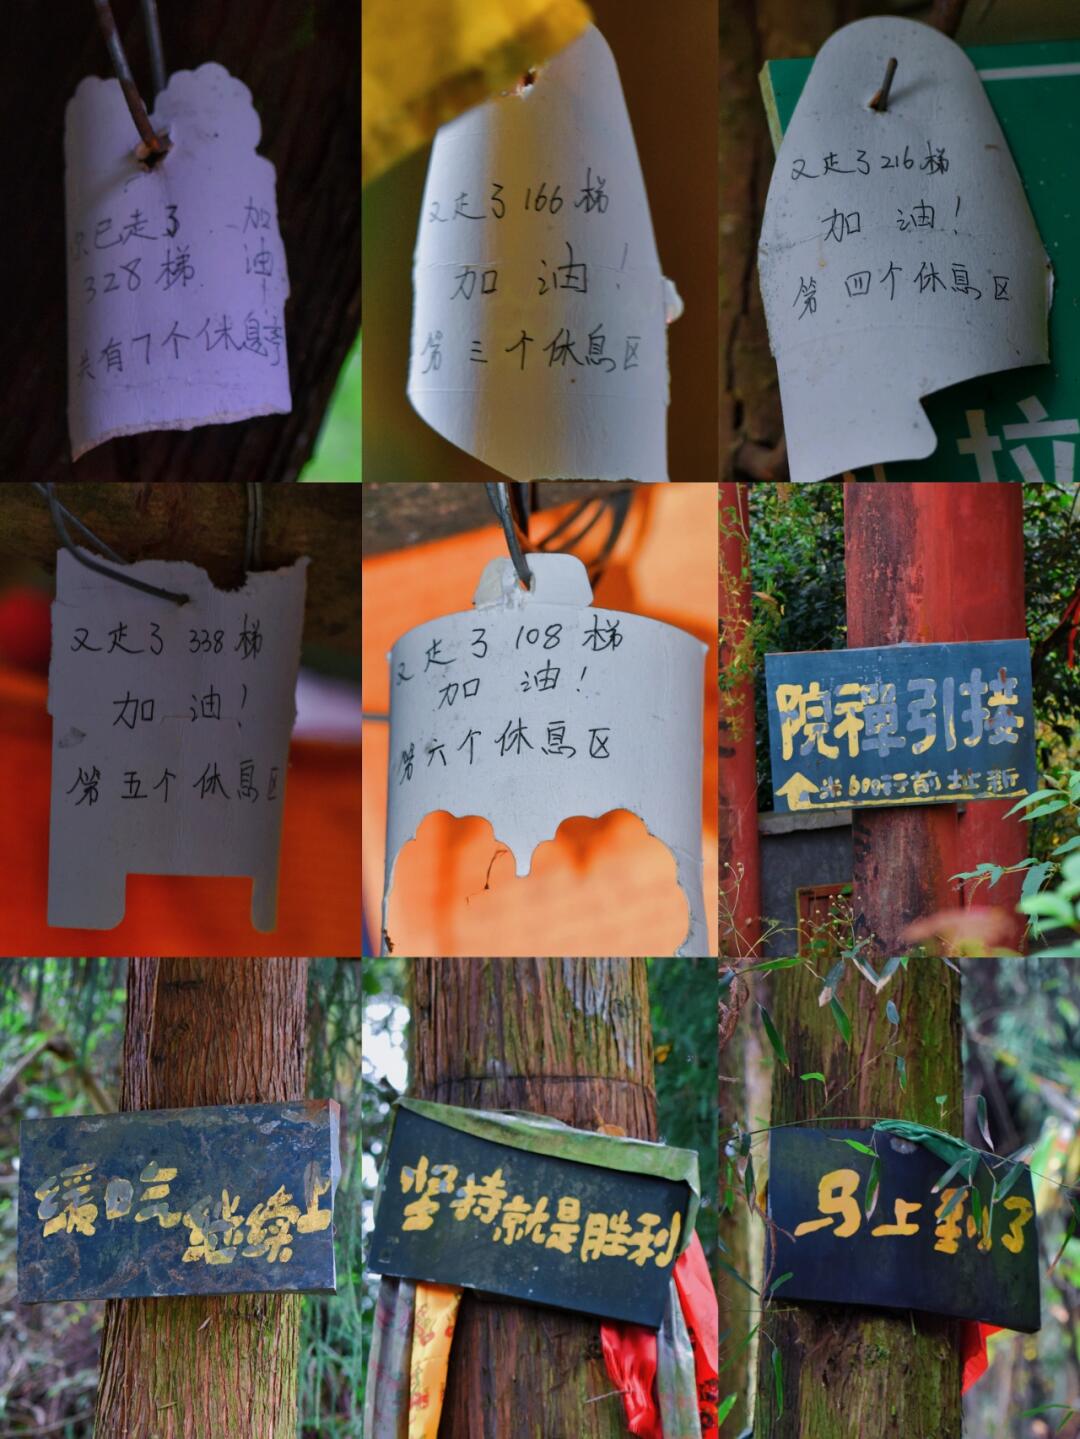 已走了
328梯
加油
共有7个休息亭
又走了166梯
加油！
第三个休息区
又走了216梯
加油！
第四个休息区
拉
又走了338梯
加油！
第五个休息区
又走了108梯
加油！
第六个休息区
接引禪院
新址前行600米
缓口气继续上
坚持就是胜利
马上到了